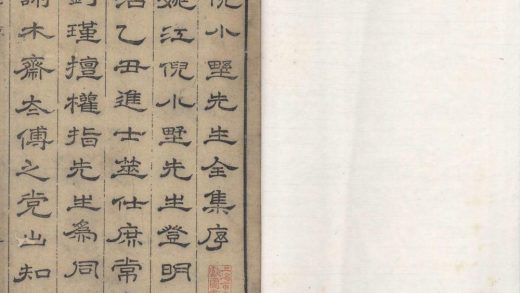 倪小墅先生全集序
姚江倪小墅先生登明
治乙丑進士筮仕庶常
劉瑾擅權指先生爲同
謝木齋太傅之党出知